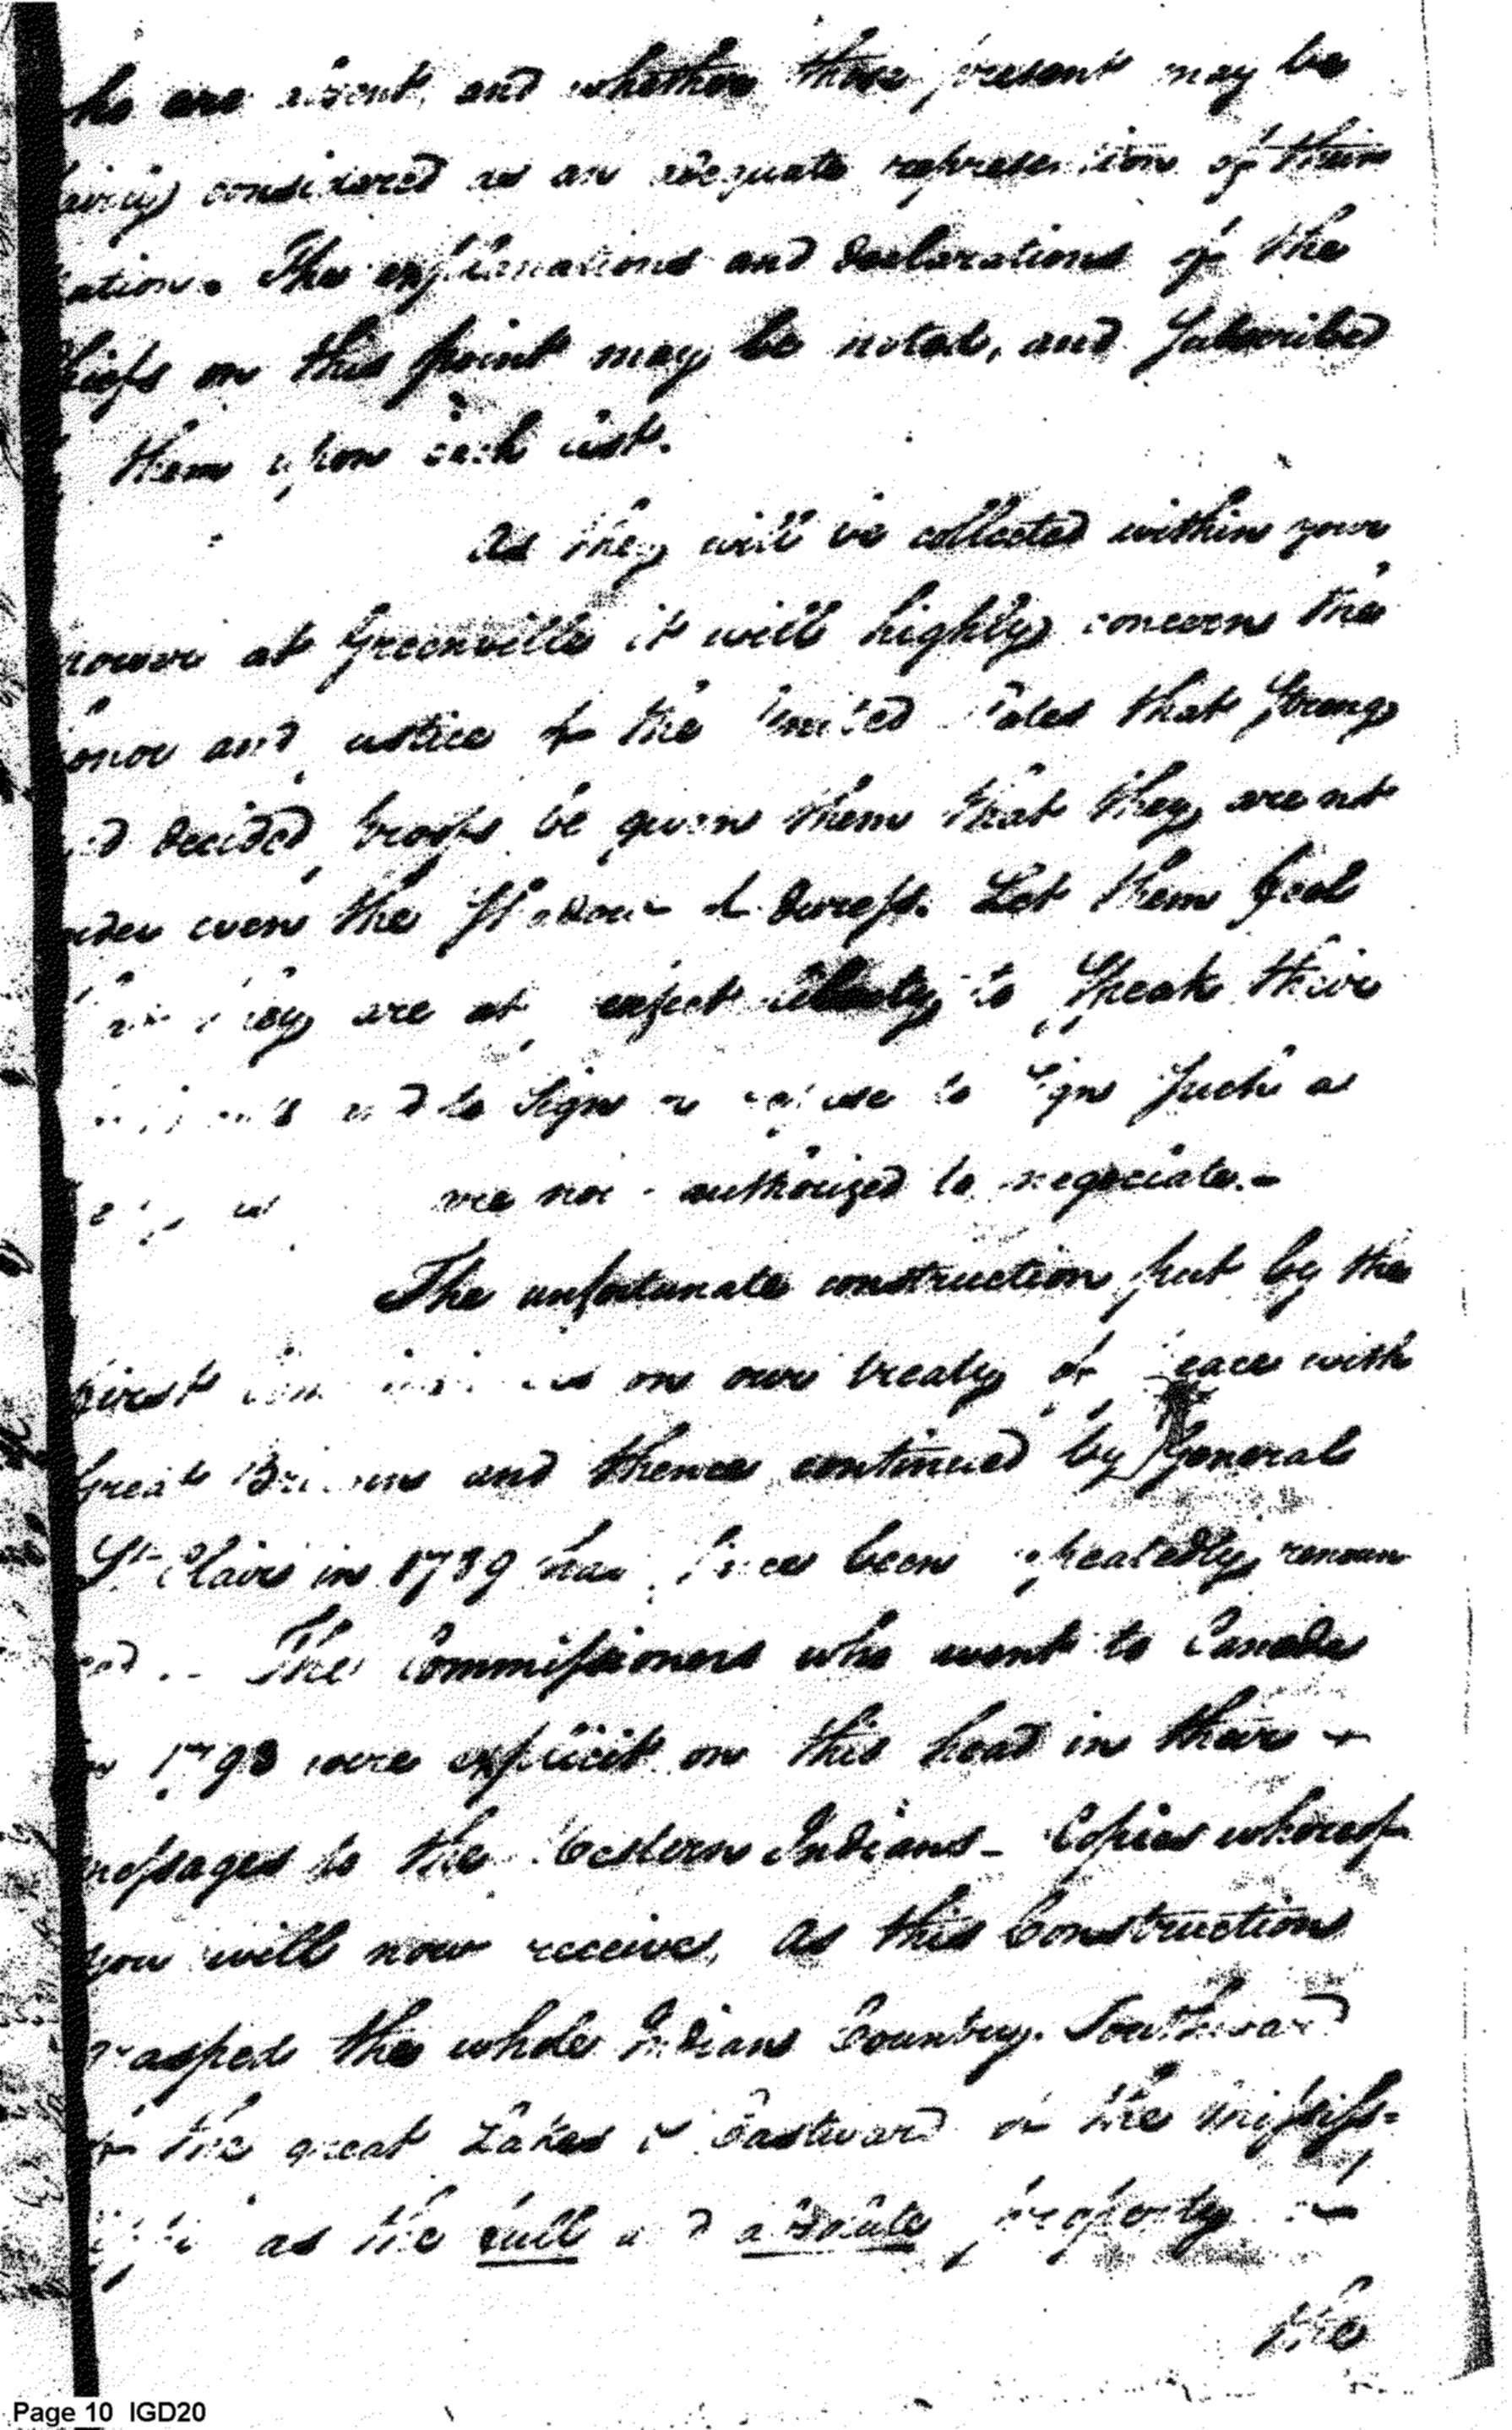 who are absent, and whether those present may be
fairly considered as an adequate representation of their
nation. The explanations and declarations of the
Chiefs on this point may be noted, and Subscribed
them upon each list.
As they will be collected within your
power at Greenville it will highly concern the
honor and justice of the United States that Strong
and decided proofs be given them that they are not
under even the Shadow of duress. Let them feel
that they are at perfect liberty to Speak their
and to Sign or refuse to Sign Such a
are not authorized to negociate.-
The unfortunate construction put by the
first on our treaty of peace with
Great Britain and thence continued by General
St. Clair in 1789 has since been repeatedly renoun
ced. - The Commissioners who went to Canada
in 1793 were explicit on this head in their
messages to the Western Indians - Copies whereof
you will now receive, As this Construction
grasped the whole Indian Country Southward
of the great Lakes & Eastward of the Mississ=
ippi as the full and absolute property of
the
Page 10 IGD20